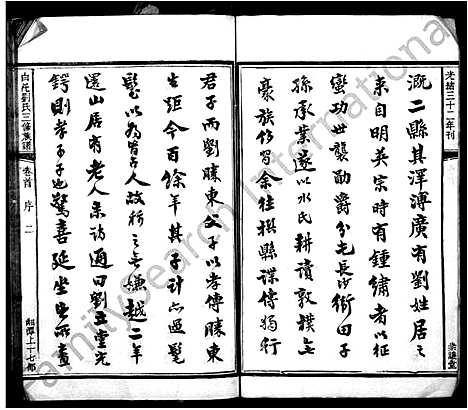 光緒三十二年刊
溉二縣其澤溥廣有劉姓居之
東自明英宗時有鍾繡者以征
蠻功世襲勛爵分屯長沙衛田子
孫承業遂以水氏耕讀敦樸為
豪族仍習余往撰縣諜傳獨行
君子而劉勝東父子以孝傳勝東
生距今百餘年其子計亦過髦
髦以為古人政行之無嫌越二年
還山居有老人來訪通曰劉玉堂先
鍔則孝子子也驚喜延坐出所畫
白苑劉氏三修族譜
卷首
序
二
湘潭上十七都
FamilySearch International